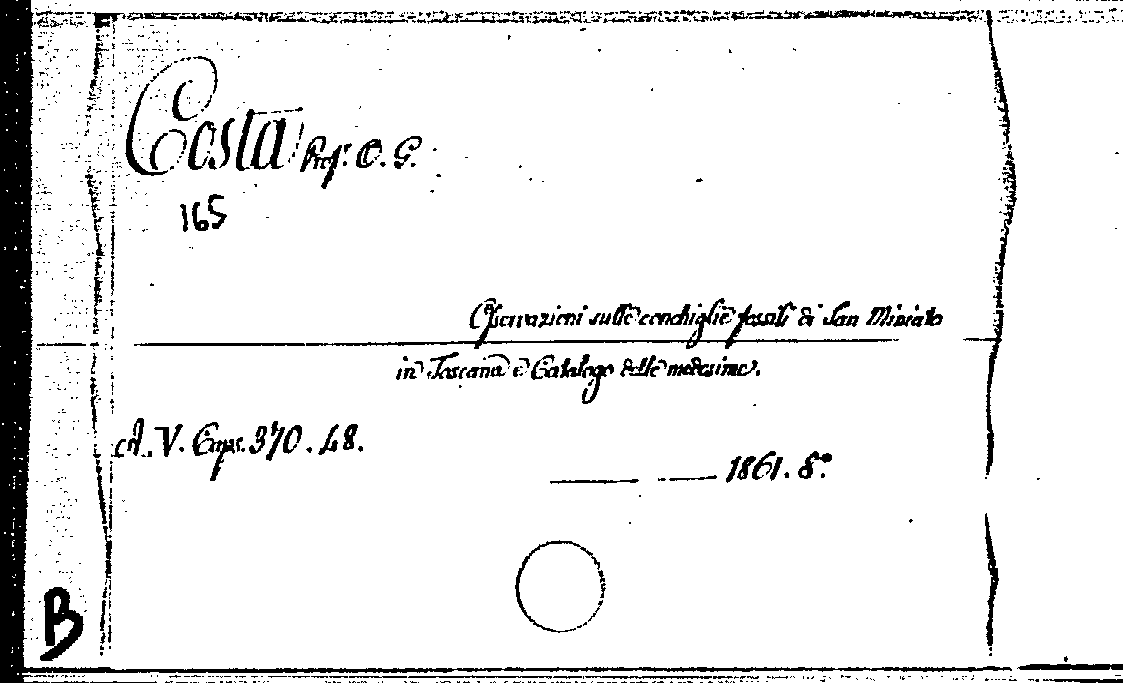 Costa Prof. O. G.
165
Osservazioni sulle conchiglie fossili di San Miniato
in Toscana e Catalogo delle medesime.
A. V. Caps. 370. 48.
1861. 8°
B